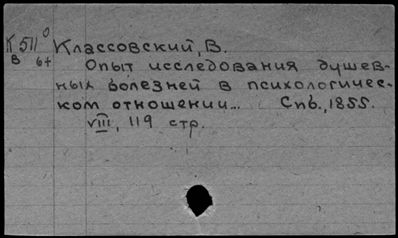 К 511⁰ Классовский, В.
В 64 Опыт исследования душев-
ных болезней в психологичес-
ком отношении... Спб., 1855.
VIII, 119 стр.